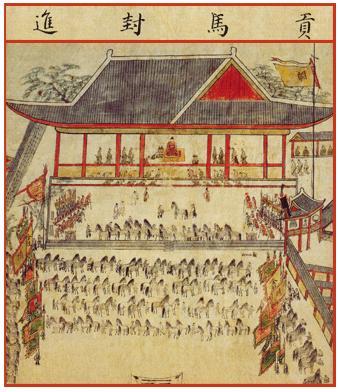 貢馬封進